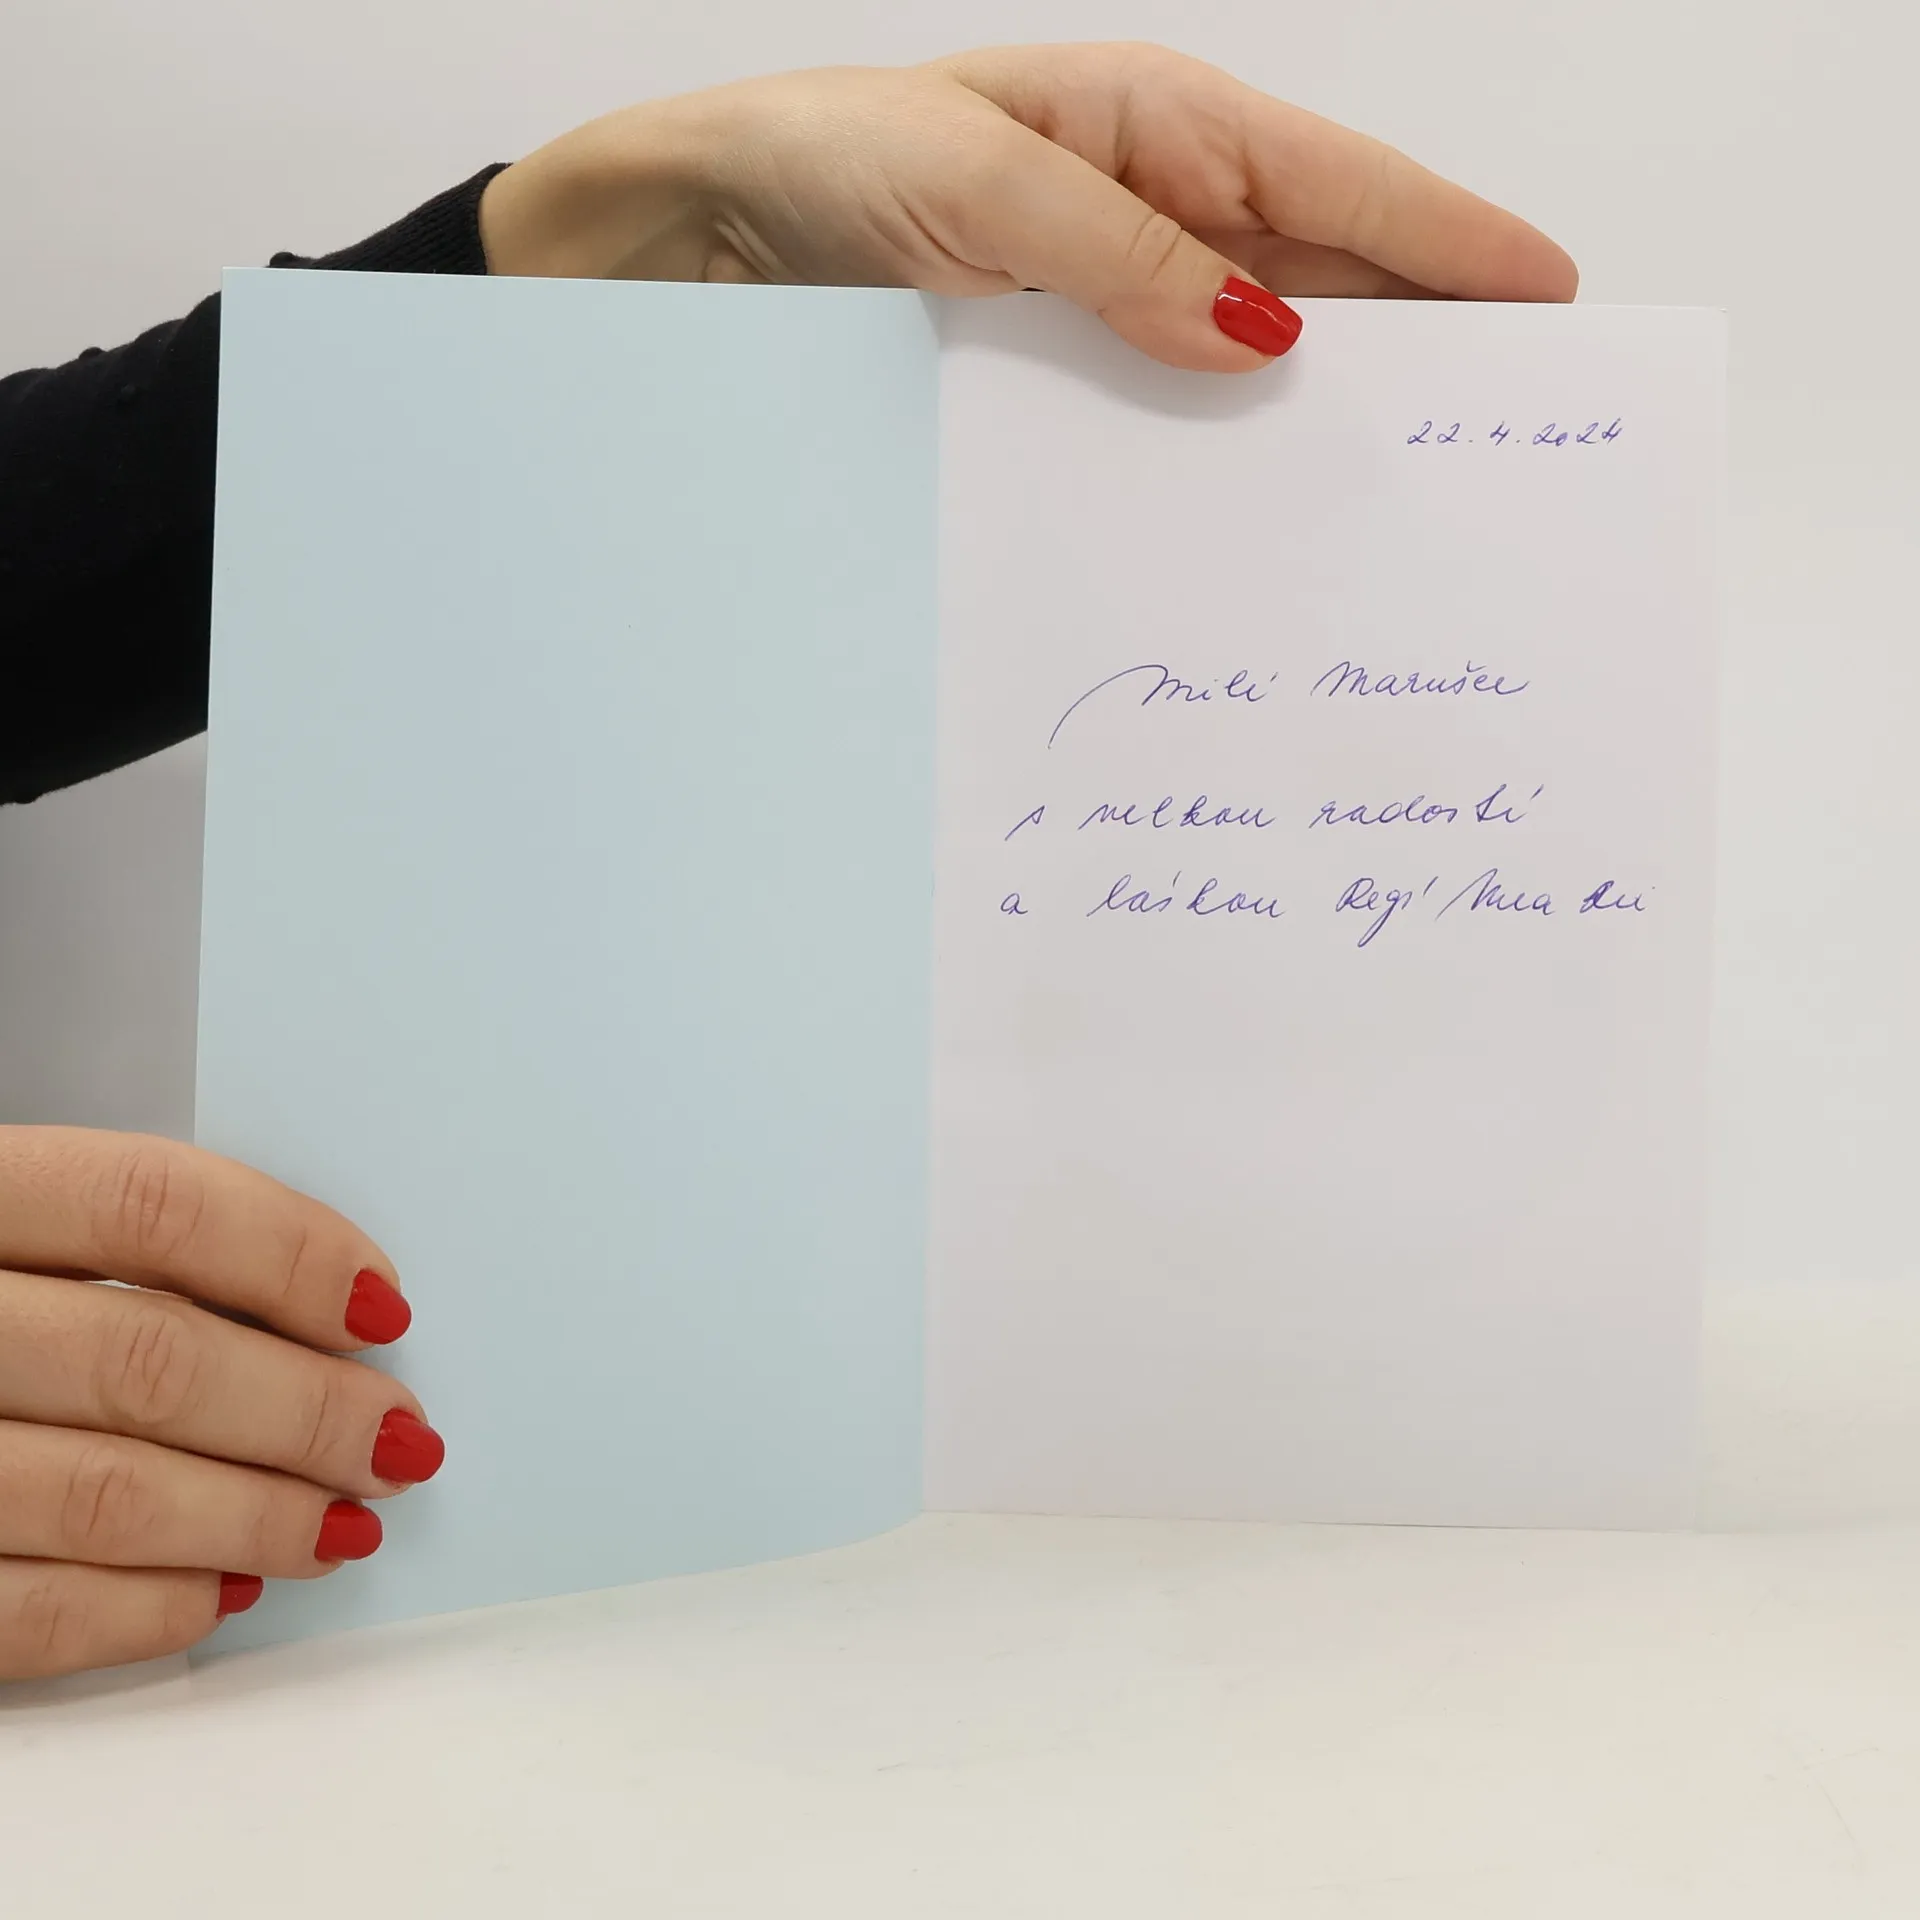 22.4.2024
Milé Marušce
s velkou radostí
a láskou